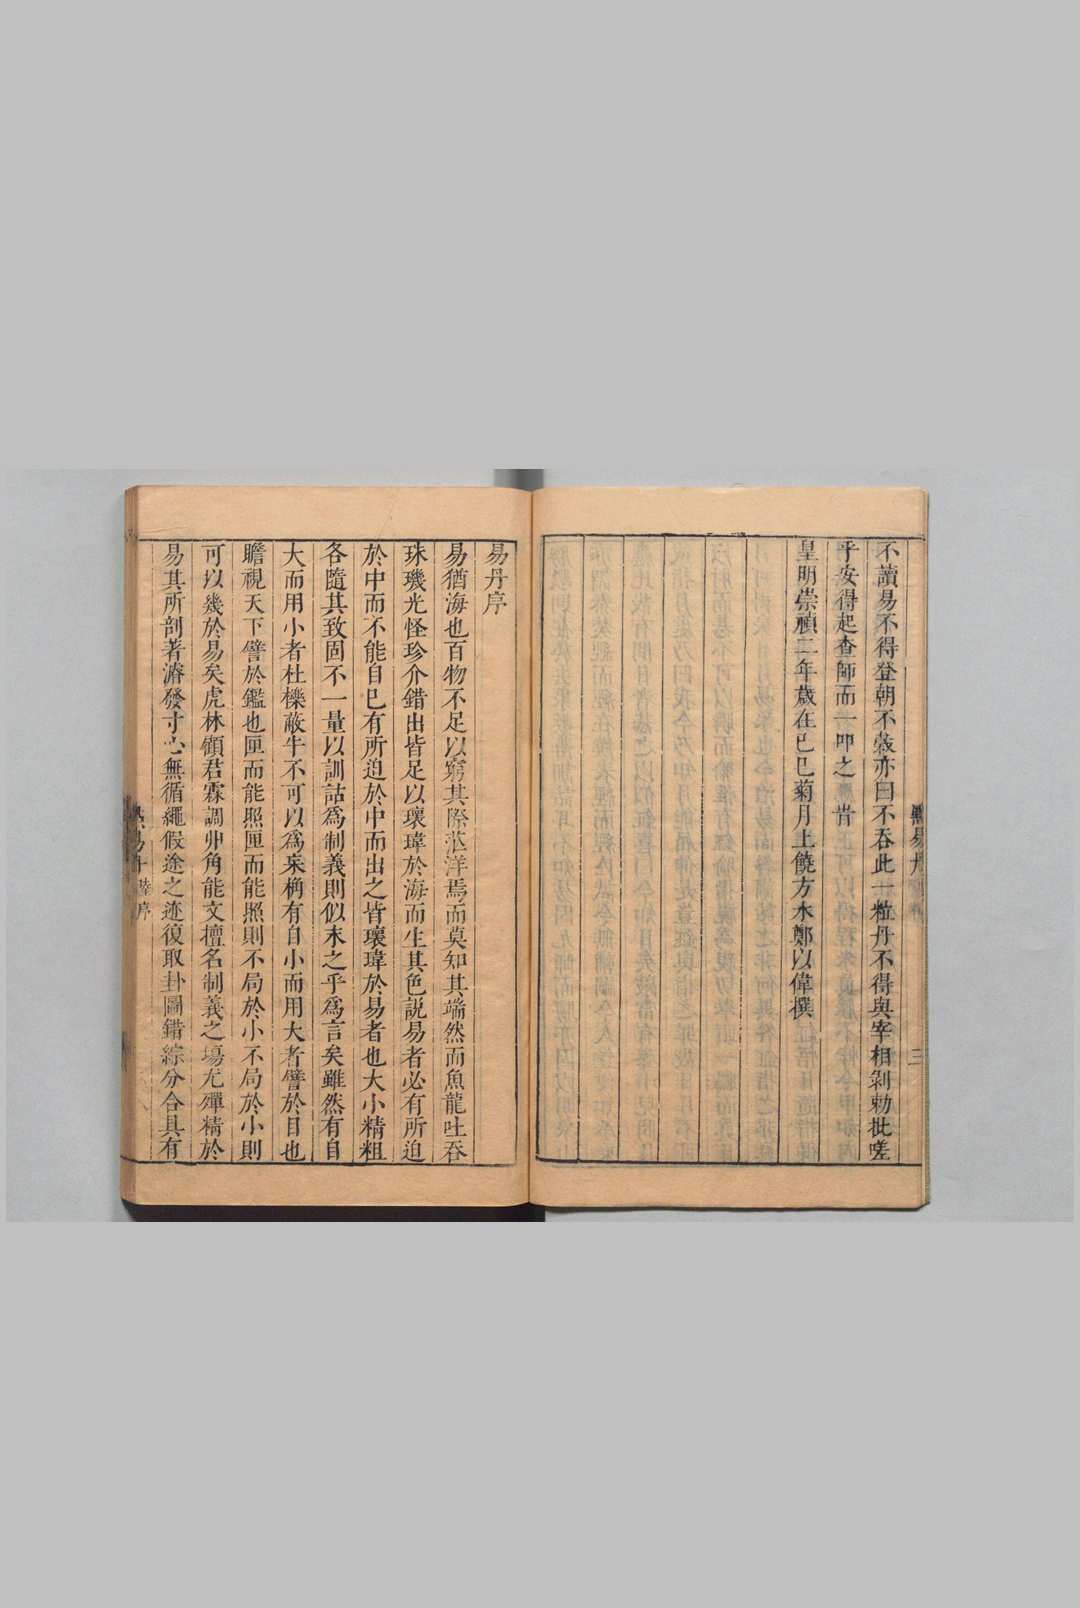 不讀易不得登朝不穀亦曰不吞此一粒丹不得與宰相剝勅批嗟
乎安得起查師而一叩之 昔
皇明崇禎二年歲在己巳菊月上饒方水鄭以偉撰
三
易丹序
易猶海也百物不足以窮其際茫洋焉而莫知其端然而魚龍吐吞
珠璣光怪珍介錯出皆足以瓌瑋於海而生其色説易者必有所迫
於中而不能自已有所迫於中而出之皆瓌瑋於易者也大小精粗
各隨其致固不一量以訓詁爲制義則似末之乎爲言矣雖然有自
大而用小者杜櫟蔽牛不可以爲宋桷有自小而用大者譬於目也
瞻視天下譬於鑑也匣而能照匣而能照則不局於小不局於小則
可以幾於易矣虎林顧君霖調丱角能文擅名制義之場尤殫精於
易其所剖著濬發寸心無循繩假途之迹復取卦圖錯綜分合具有
陸序